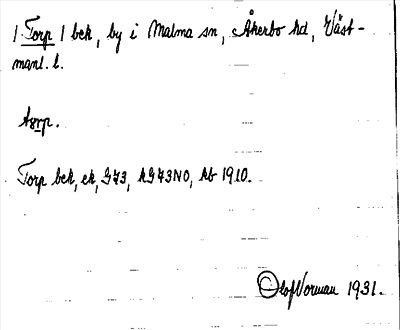 / Torp / bek, by i Malma sn, Åkerbo hd, Väst-
manl. l.
tɔrp.
Torp bek, ek, G73, kG73NO, kb 1910.
Olof Norman 1931.